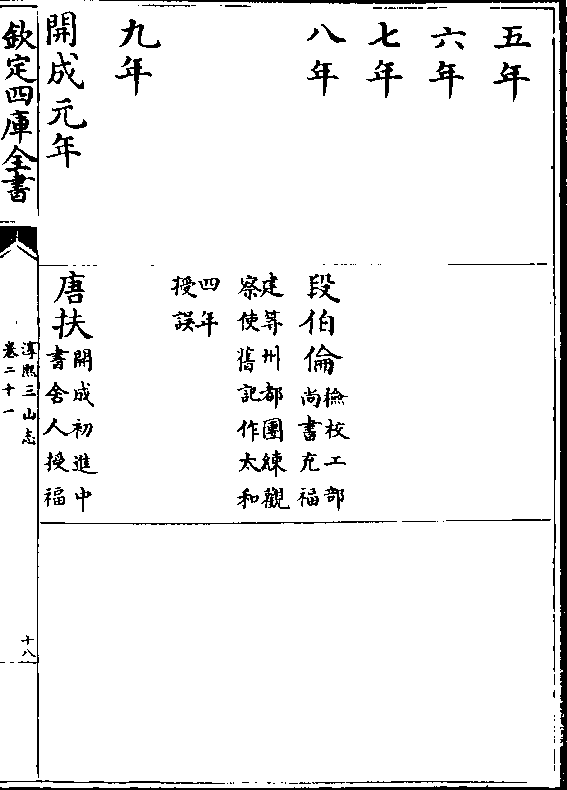 五年
六年
七年
八年
段伯倫檢校工部
尚書充福
建等州都團練觀
察使舊記作太和
四年
授誤
九年
開成元年
唐扶開成初進中
書舍人授福
欽定四庫全書
淳熙三山志
卷二十一
十八